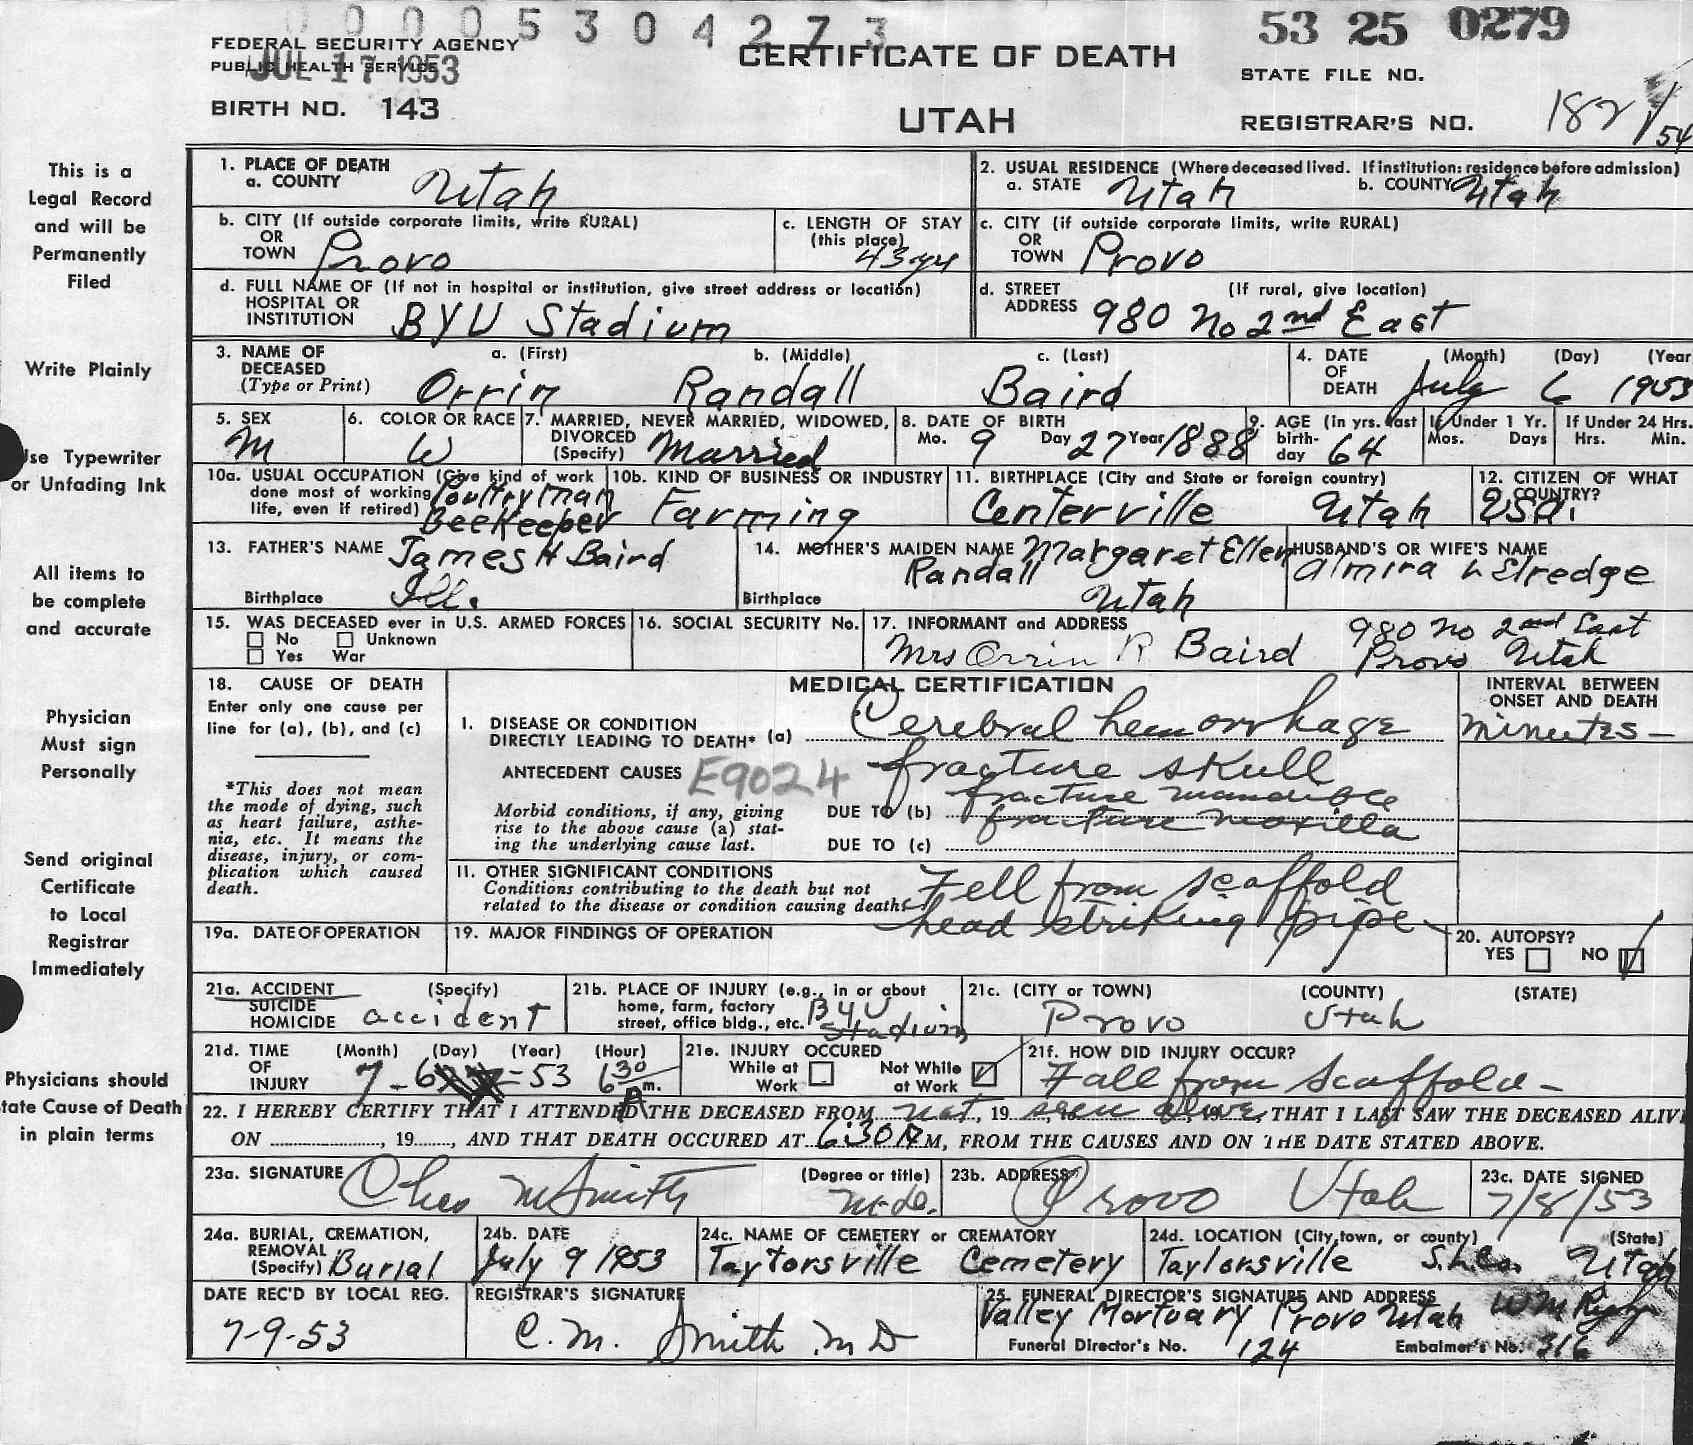 0 0 0 0 5 3 0 4 2 7 3
53 25 0279
FEDERAL SECURITY AGENCY
PUBLIC HEALTH SERVICE
JUL 17 1953
CERTIFICATE OF DEATH
STATE FILE NO.
BIRTH NO. 143
UTAH
REGISTRAR'S NO. 182 1/54
This is a
Legal Record
and will be
Permanently
Filed
Write Plainly
Use Typewriter
or Unfading Ink
All items to
be complete
and accurate
Physician
Must sign
Personally
Send original
Certificate
to Local
Registrar
Immediately
Physicians should
state Cause of Death
in plain terms
1. PLACE OF DEATH
a. COUNTY Utah
2. USUAL RESIDENCE (Where deceased lived. If institution: residence before admission)
a. STATE Utah b. COUNTY Utah
b. CITY (If outside corporate limits, write RURAL)
OR
TOWN Provo
c. LENGTH OF STAY
(this place)
43 yr
c. CITY (if outside corporate limits, write RURAL)
OR
TOWN Provo
d. FULL NAME OF (If not in hospital or institution, give street address or location)
HOSPITAL OR
INSTITUTION BYU Stadium
d. STREET (If rural, give location)
ADDRESS 980 No 2nd East
3. NAME OF DECEASED (Type or Print)
a. (First) b. (Middle) c. (Last)
Orrin Randall Baird
4. DATE OF DEATH (Month) (Day) (Year
July 6 1953
5. SEX
M
6. COLOR OR RACE
W
7. MARRIED, NEVER MARRIED, WIDOWED,
DIVORCED
(Specify) Married
8. DATE OF BIRTH
Mo. 9 Day 27 Year 1888
9. AGE (in yrs. last
birth-
day 64
If Under 1 Yr.
Mos. Days
If Under 24 Hrs.
Hrs. Min.
10a. USUAL OCCUPATION (Give kind of work
done most of working
life, even if retired)
Poultryman
Beekeeper
10b. KIND OF BUSINESS OR INDUSTRY
Farming
11. BIRTHPLACE (City and State or foreign country)
Centerville Utah
12. CITIZEN OF WHAT
COUNTRY?
USA.
13. FATHER'S NAME James H Baird
Birthplace Ill.
14. MOTHER'S MAIDEN NAME Margaret Ellen
Randall
Birthplace Utah
HUSBAND'S OR WIFE'S NAME
Almira L Elredge
15. WAS DECEASED ever in U.S. ARMED FORCES
No Unknown
Yes War
16. SOCIAL SECURITY No.
17. INFORMANT and ADDRESS
Mrs Orrin R Baird
980 No 2nd East
Provo Utah
18. CAUSE OF DEATH
Enter only one cause per
line for (a), (b), and (c)
*This does not mean
the mode of dying, such
as heart failure, asthe-
nia, etc. It means the
disease, injury, or com-
plication which caused
death.
MEDICAL CERTIFICATION
INTERVAL BETWEEN
ONSET AND DEATH
minutes
1. DISEASE OR CONDITION
DIRECTLY LEADING TO DEATH* (a) Cerebral hemorrhage
ANTECEDENT CAUSES E9024 fracture skull
Morbid conditions, if any, giving
rise to the above cause (a) stat-
ing the underlying cause last.
DUE TO (b) fracture mandible
fracture maxilla
DUE TO (c)
11. OTHER SIGNIFICANT CONDITIONS
Conditions contributing to the death but not
related to the disease or condition causing death.
Fell from scaffold
head striking pipe
19a. DATE OF OPERATION
19. MAJOR FINDINGS OF OPERATION
20. AUTOPSY?
YES NO
21a. ACCIDENT (Specify)
SUICIDE
HOMICIDE accident
21b. PLACE OF INJURY (e.g., in or about
home, farm, factory
street, office bldg., etc.
BYU
Stadium
21c. (CITY or TOWN) (COUNTY) (STATE)
Provo Utah
21d. TIME OF INJURY (Month) (Day) (Year) (Hour)
7-6-53 6 30 m.
21e. INJURY OCCURED
While at Work
Not While at Work
21f. HOW DID INJURY OCCUR?
Fall from Scaffold
22. I HEREBY CERTIFY THAT I ATTENDED THE DECEASED FROM not, 19 seen alive, 19, THAT I LAST SAW THE DECEASED ALIVE
ON , 19 , AND THAT DEATH OCCURED AT 6:30 P M, FROM THE CAUSES AND ON THE DATE STATED ABOVE.
23a. SIGNATURE (Degree or title)
Chas M Smith M.D.
23b. ADDRESS
Provo Utah
23c. DATE SIGNED
7/8/53
24a. BURIAL, CREMATION,
REMOVAL
(Specify) Burial
24b. DATE
July 9 1953
24c. NAME OF CEMETERY or CREMATORY
Taylorsville Cemetery
24d. LOCATION (City, town, or county) (State)
Taylorsville S.L.Co. Utah
DATE REC'D BY LOCAL REG.
7-9-53
REGISTRAR'S SIGNATURE
C. M. Smith MD
25. FUNERAL DIRECTOR'S SIGNATURE AND ADDRESS
Valley Mortuary Provo Utah
Funeral Director's No. 124
Embalmer's No. 316